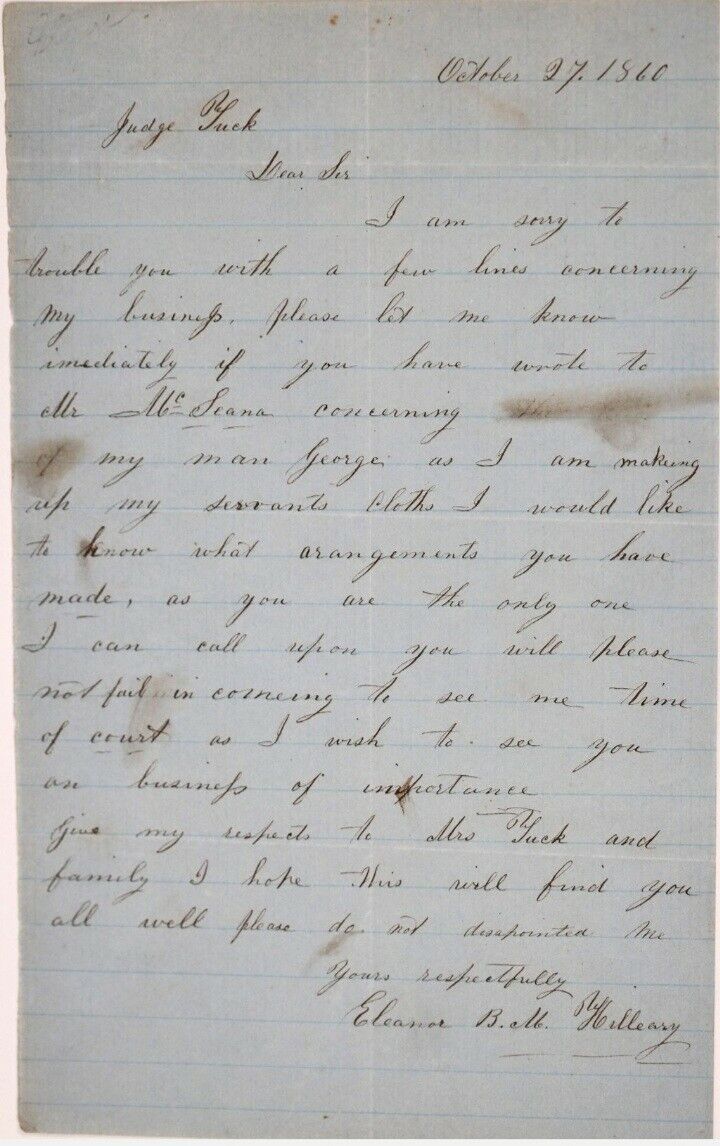 October 27. 1860
Judge Tuck
Dear Sir
I am sorry to
trouble you with a few lines concerning
my business, please let me know
imediately if you have wrote to
Mr McSeana concerning
of my man George as I am makeing
up my servants cloths I would like
to know what arangements you have
made, as you are the only one
I can call upon you will please
not fail in comeing to see me time
of court as I wish to see you
on business of importance
Give my respects to Mrs Tuck and
family I hope this will find you
all well please do not disapointed me
Yours respectfully
Eleanor B. M. Hilleary